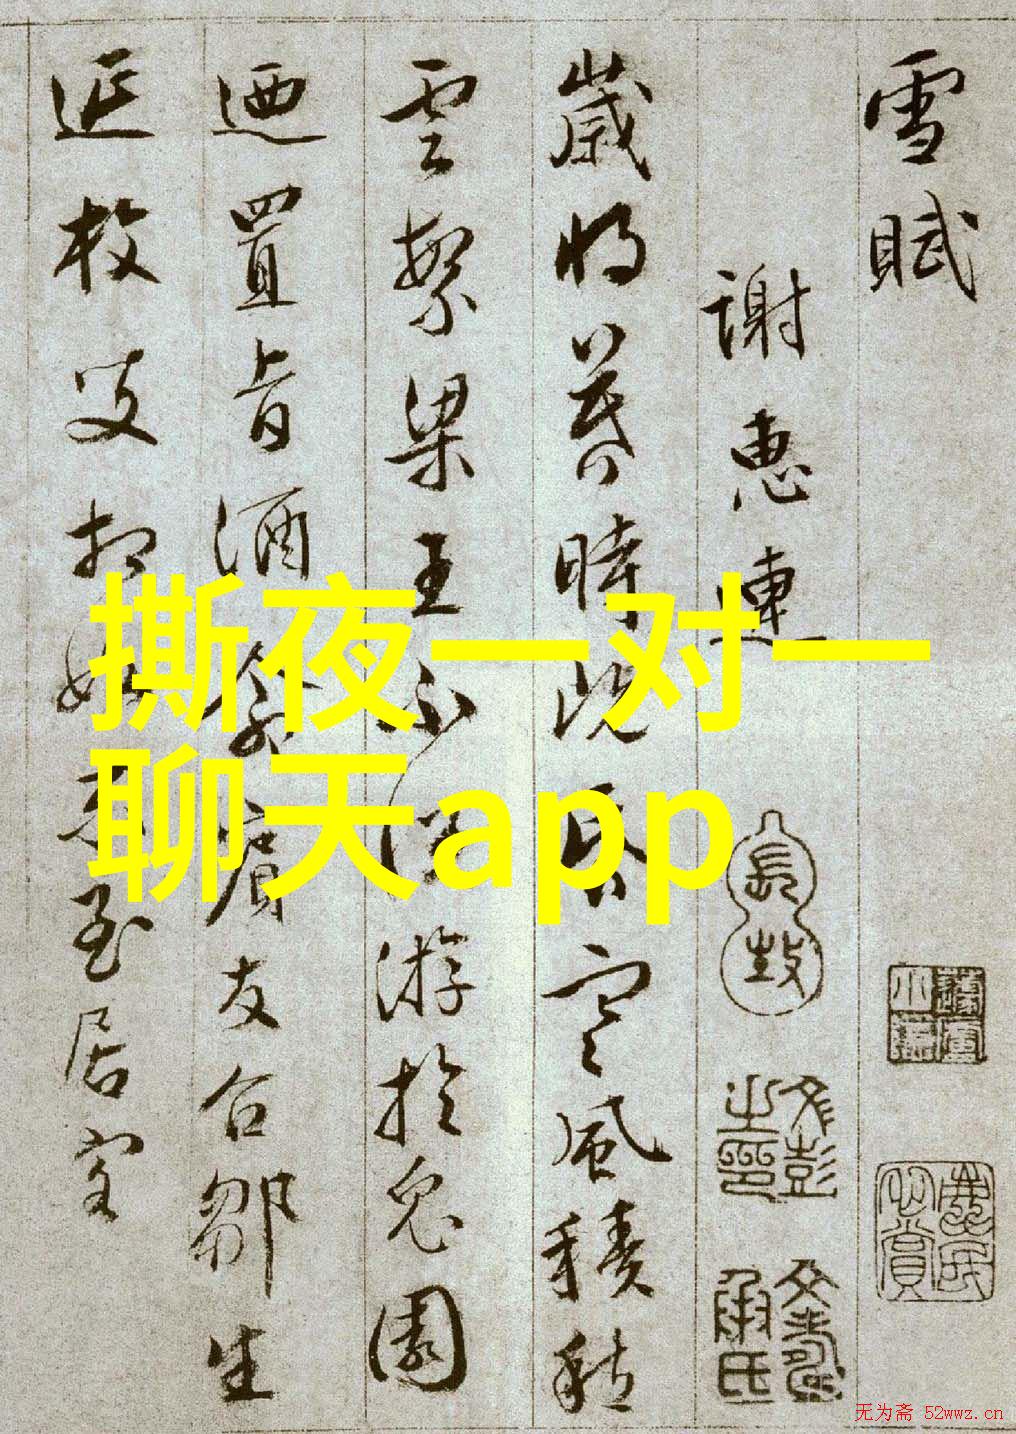 雪賦
謝惠連
歲将暮時既昏寒風積愁
雲繁梁王不悅游於兔園
迺置旨酒命賓友召鄒生
延枚叟相如末至居客
撕夜一对一
聊天app
文彭之印
文壽承氏
无为斋 52wwz.cn